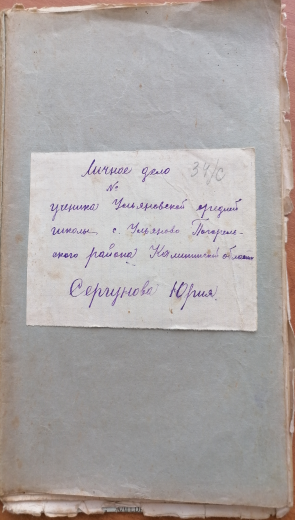 Личное дело 34/С
№
ученика Ульяновской средней
школы с. Ульяново Погорель-
ского района Калининской области
Сергунова Юрия